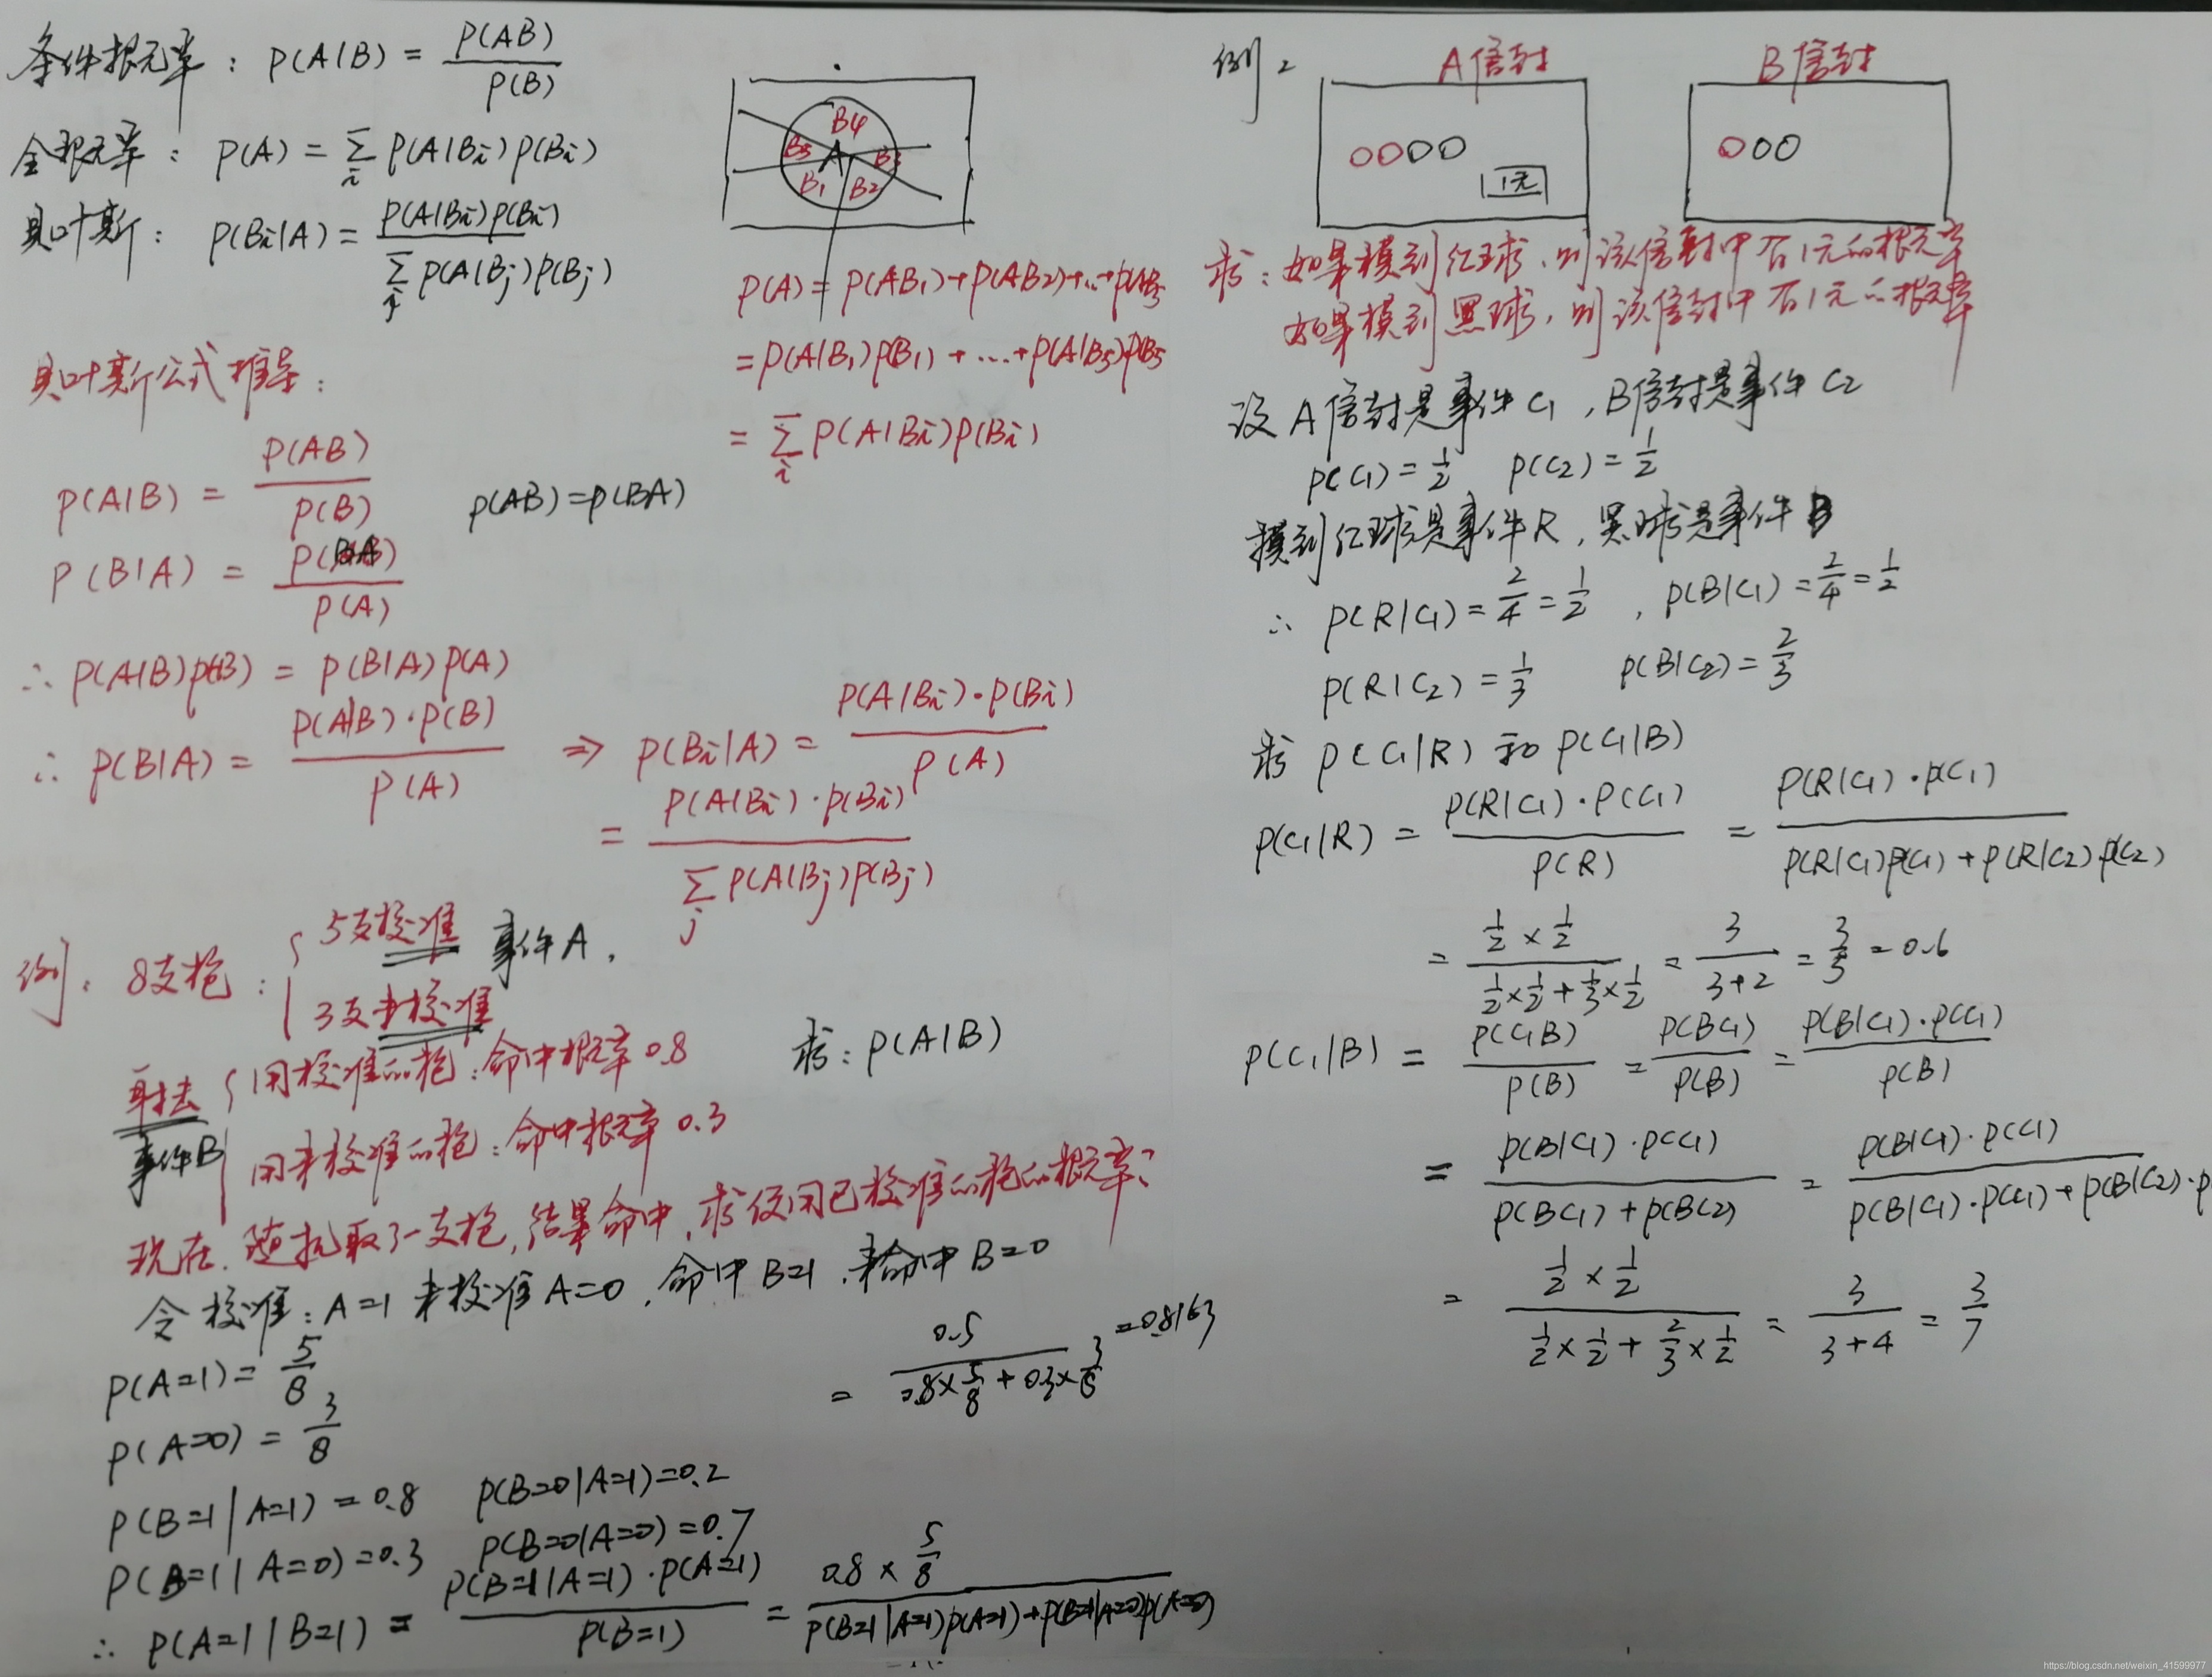 条件概率：P(A|B) = P(AB) / P(B)
全概率：P(A) = ∑i P(A|Bi)P(Bi)
贝叶斯：P(Bi|A) = P(A|Bi)P(Bi) / ∑j P(A|Bj)P(Bj)
贝叶斯公式推导：
P(A|B) = P(AB) / P(B)   P(AB)=P(BA)
P(B|A) = P(BA) / P(A)
∴ P(A|B)P(B) = P(B|A)P(A)
∴ P(B|A) = P(A|B)·P(B) / P(A) ⇒ P(Bi|A) = P(A|Bi)·P(Bi) / P(A)
= P(A|Bi)·P(Bi) / ∑j P(A|Bj)P(Bj)
B4
B5 A B3
B1 B2
P(A) = P(AB1)+P(AB2)+...+P(AB5
=P(A|B1)P(B1) + ...+P(A|B5)P(B5
= ∑i P(A|Bi)P(Bi)
例：8支枪：{ 5支校准 事件A,
3支未校准
射击 { 用校准的枪：命中概率0.8   求：P(A|B)
事件B 用未校准的枪：命中概率0.3
现在,随机取了一支枪,结果命中,求使用已校准的枪的概率？
令校准：A=1 未校准A=0,命中B=1,未命中B=0
P(A=1)= 5/8
P(A=0) = 3/8
P(B=1|A=1) = 0.8   P(B=0|A=1)=0.2
P(B=1|A=0)=0.3   P(B=0|A=0)=0.7
∴ P(A=1|B=1) = P(B=1|A=1)·P(A=1) / P(B=1) = 0.8 × 5/8 / P(B=1|A=1)P(A=1)+P(B=1|A=0)P(A=0)
= 0.5 / 0.8×5/8 + 0.3×3/8 =0.8163
例2
A信封   B信封
1元
求：如果摸到红球,则该信封中有1元的概率
如果摸到黑球,则该信封中有1元的概率
设A信封是事件C1,B信封是事件C2
P(C1)=1/2   P(C2)=1/2
摸到红球是事件R,黑球是事件B
∴ P(R|C1)=2/4=1/2 , P(B|C1)=2/4=1/2
P(R|C2)=1/3   P(B|C2)=2/3
求 P(C1|R) 和 P(C1|B)
P(C1|R) = P(R|C1)·P(C1) / P(R) = P(R|C1)·P(C1) / P(R|C1)P(C1)+P(R|C2)P(C2)
= 1/2×1/2 / 1/2×1/2+1/3×1/2 = 3 / 3+2 = 3/5 =0.6
P(C1|B) = P(C1B) / P(B) = P(BC1) / P(B) = P(B|C1)·P(C1) / P(B)
= P(B|C1)·P(C1) / P(BC1)+P(BC2) = P(B|C1)·P(C1) / P(B|C1)·P(C1)+P(B|C2)·P
= 1/2×1/2 / 1/2×1/2+2/3×1/2 = 3 / 3+4 = 3/7
https://blog.csdn.net/weixin_41599977